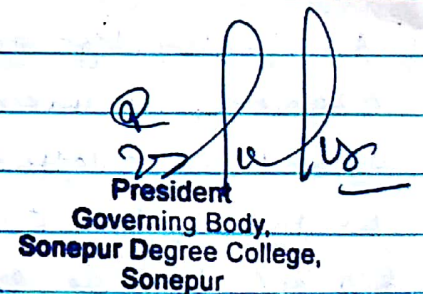 President
Governing Body,
Sonepur Degree College,
Sonepur